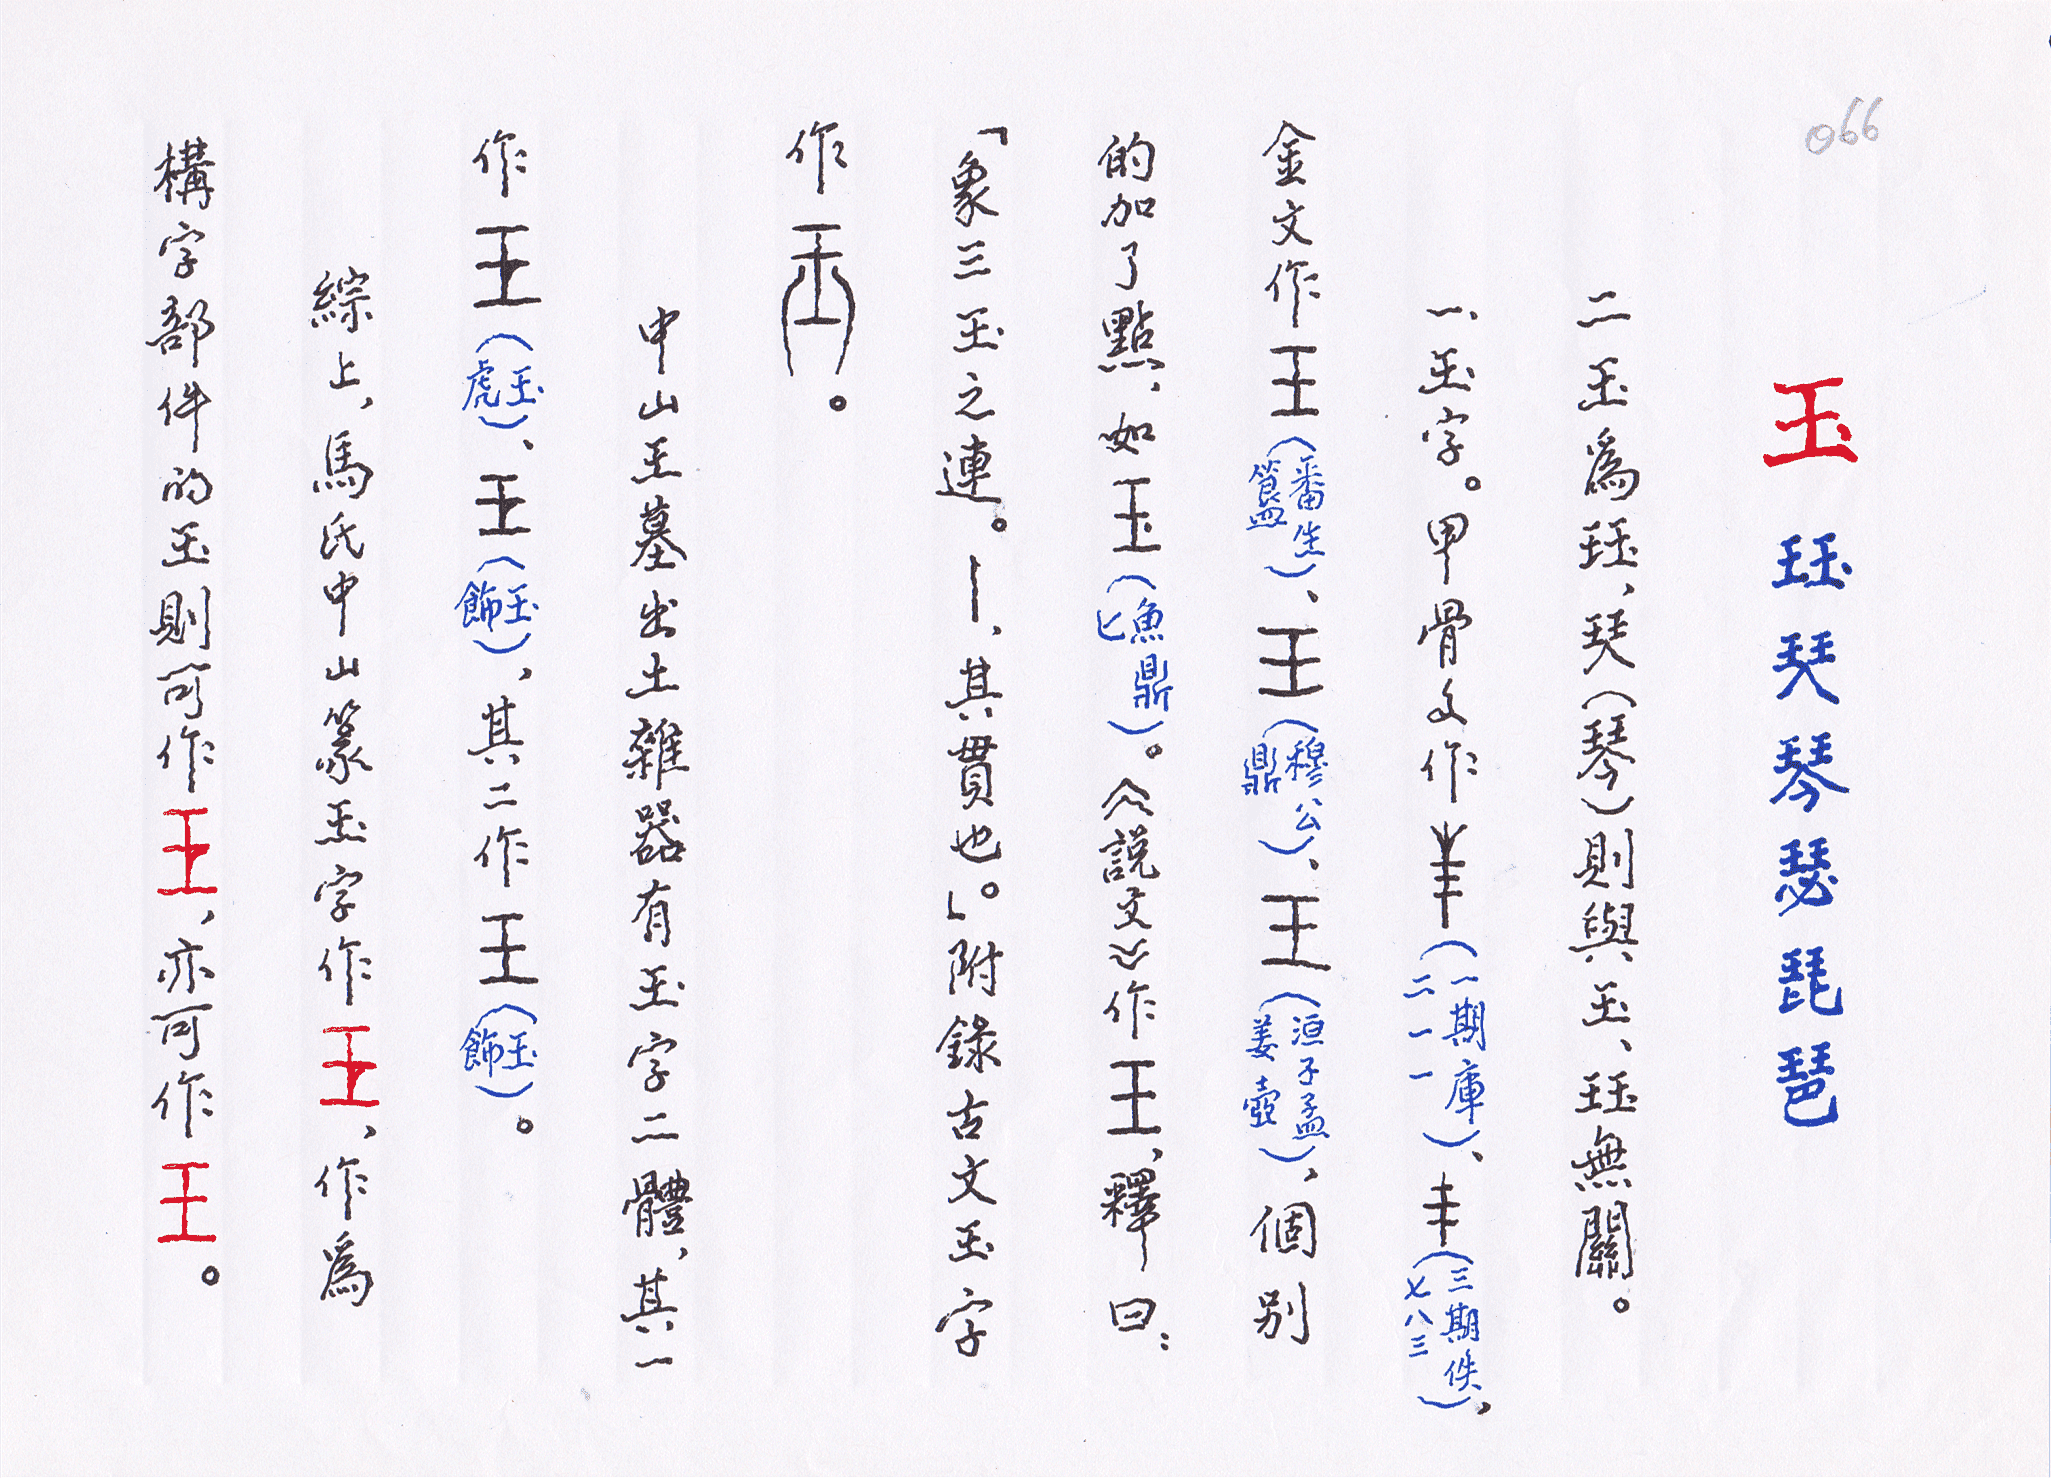 066
玉 玨 珡 琴 瑟 琵 琶
二玉為玨、珡(琴)則與玉、玨無關。
一、玉字。甲骨文作(一期庫二一一)、丰(三期佚七八三),
金文作王(番生簋)、王(穆公鼎)、王(洹子孟姜壺),個別
的加了點,如玉(魚鼎匕)。《說文》作王,釋曰:
「象三玉之連。丨,其貫也。」附錄古文玉字
作。
中山王墓出土雜器有玉字二體,其一
作王(玉虎)、王(玉飾),其二作王(玉飾)。
綜上,馬氏中山篆玉字作王,作為
構字部件的玉則可作王,亦可作王。